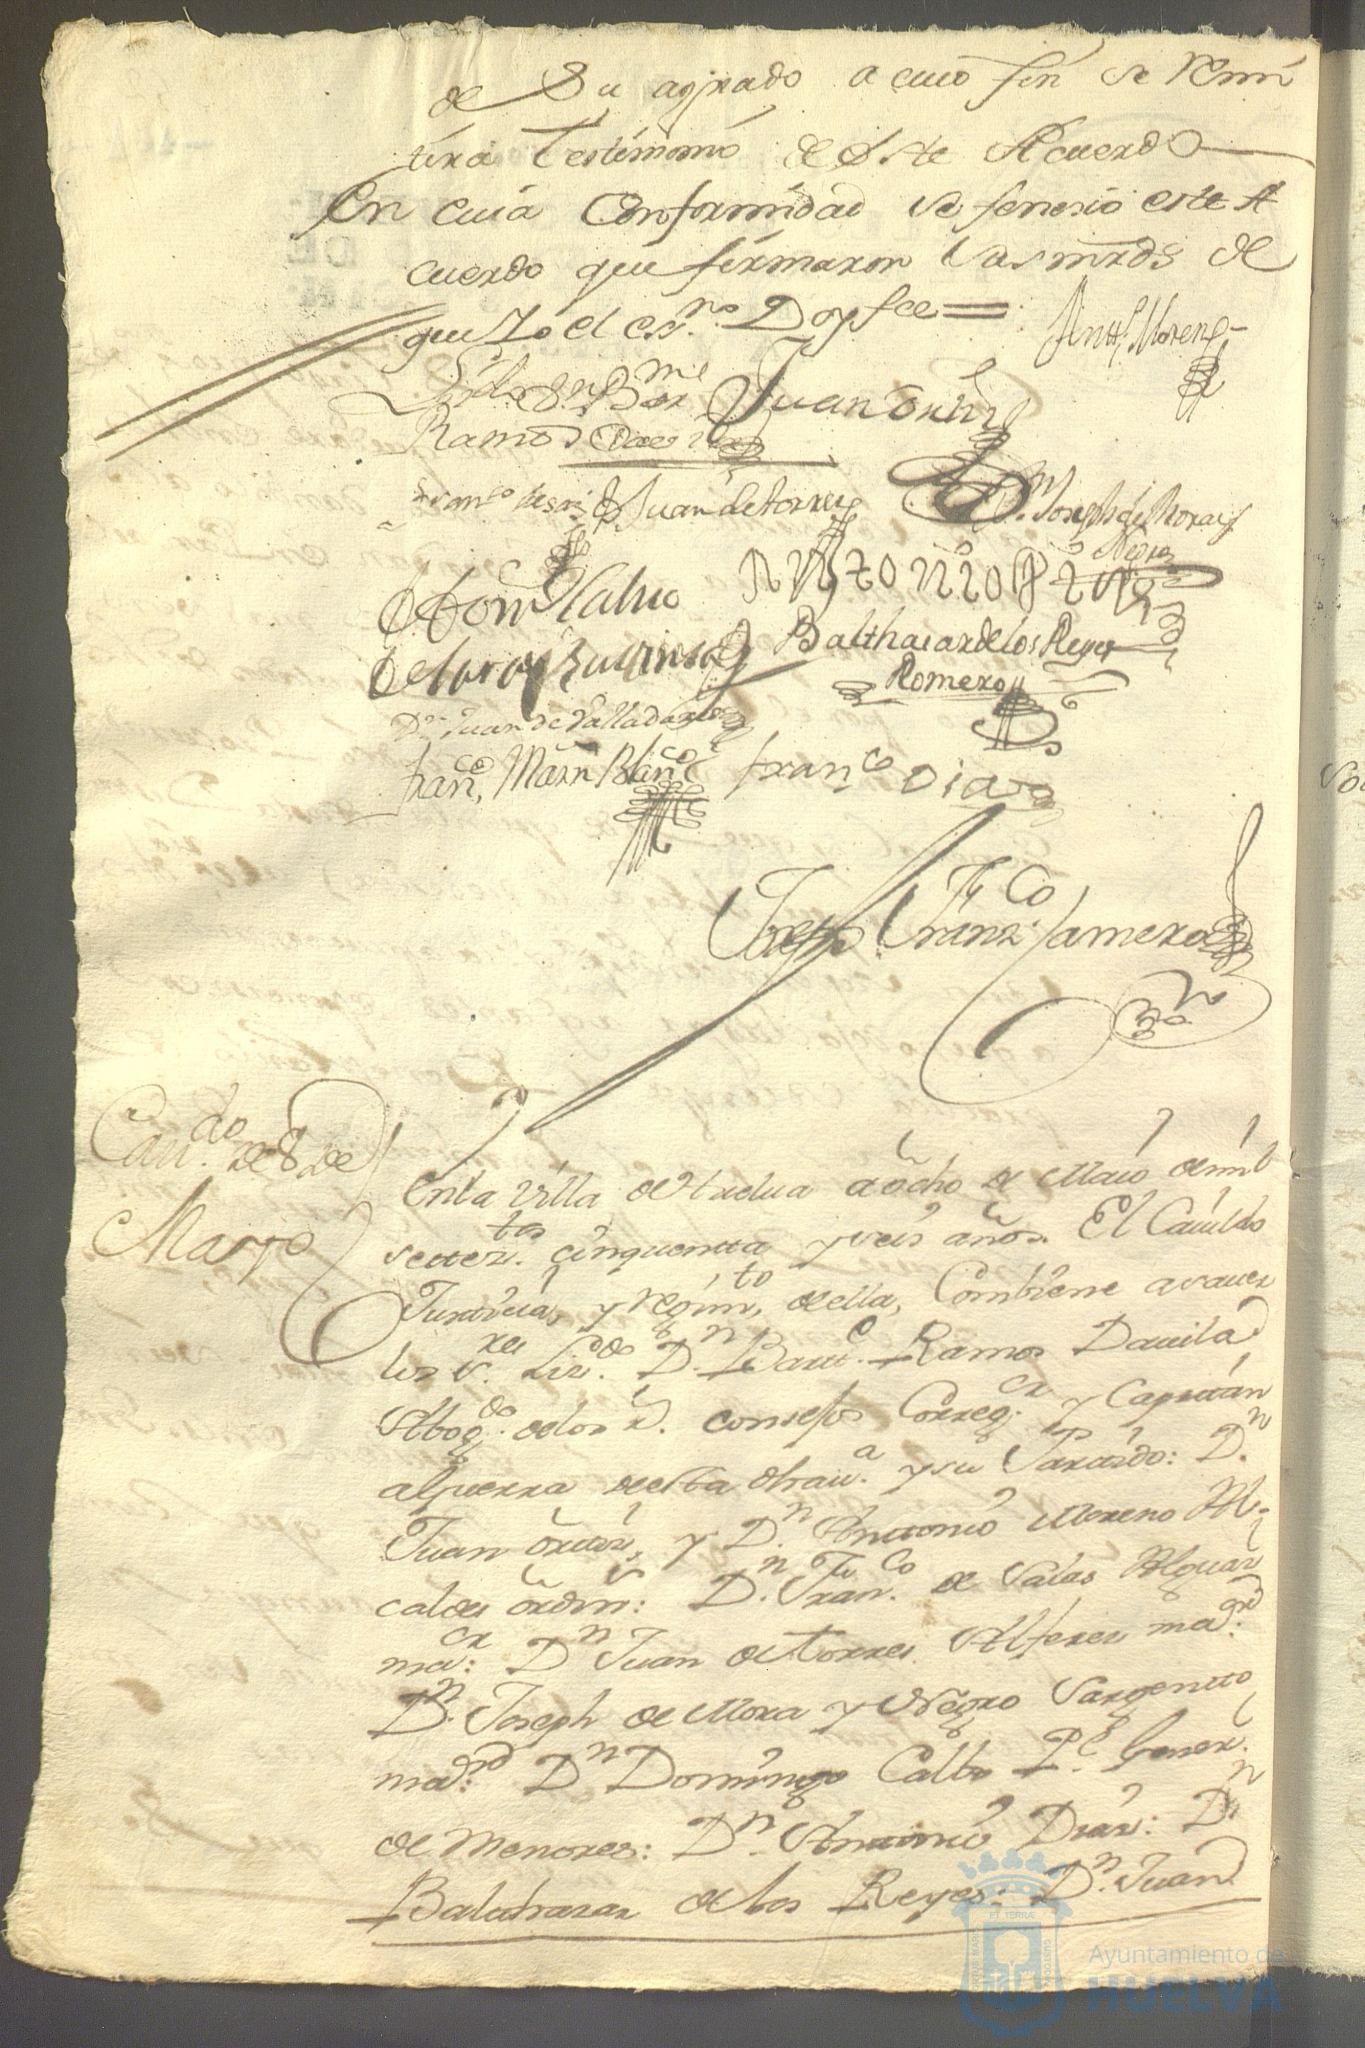 de Su agrado a cuio fin se remi
tira Testimonio de Este Acuerdo
En cuia Conformidad se fenesio este A
cuerdo que firmaron Sus mrds de
que Yo el ess.no Doy fee =
Antt.o Moreno
Lizdo Dn Barme
Ramos Davila
Juan Ortiz
Juan de Torres
Dn Joseph de Mora y
Negro
Dom.o Calvo
Antonio Diaz
Balthasar de los Reyes
Romero
Dn Juan de Valladares
Fran.co Marn Blanco
Fran.co Diaz
Joseph Franz.co Zamera
Cau.do de 8 de
Mayo
En la Villa de Huelua a ocho de Maio de mil
setez.tos cinquentta y seis años. El Cauildo
Justicia, y regim.to de ella, Combiene a sauer
los S.res Liz.do D.n Barme. Ramos Dauila
Abog.do de los R.s consejos Correg.or y Capitán
a guerra de esta dha uª. y su Jurazdo: D.n
Juan Ortiz, y D.n Antonio Moreno Al-
caldes ordin.s: D.n Fran.co de Salas Alguazil
ma.or D.n Juan de Torres Alferez ma.or
D.n Joseph de Mora y Negro Sargento
ma.or D.n Domingo Calbo P.e Gener.l
de Menores: D.n Antonio Diaz: D.n
Balthazar de los Reyes: D.n Juan
Ayuntamiento de
HUELVA